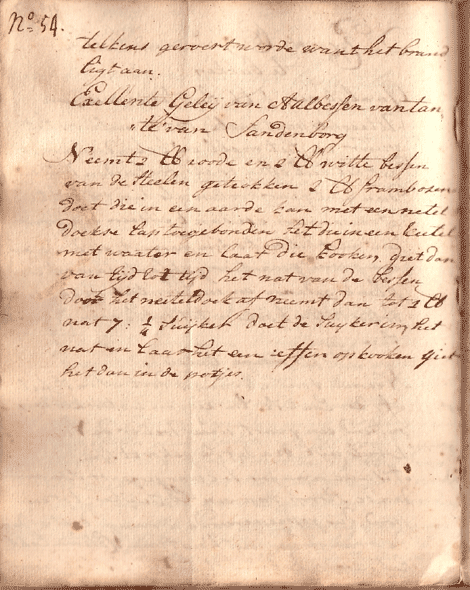 No. 54.
telkens geroert worde want het brand
ligt aan.
Exellente Geleij van Aalbessen van tan
te van Sandenborg
Neemt 2 lb roode en 2 lb witte bessen
van de steelen getrokken 2 lb frambosen
doet die in een aarde kan met een netel
doekse lap toegebonden zet die in een ketel
met waater en laat die kooken, giet dan
van tijd tot tijd het nat van de bessen
door het neteldoek af neemt dan tot 1 lb
nat 7: 1/4 suijker doet de suyker in het
nat en laat het een effen opkooken giet
het dan in de potjes.